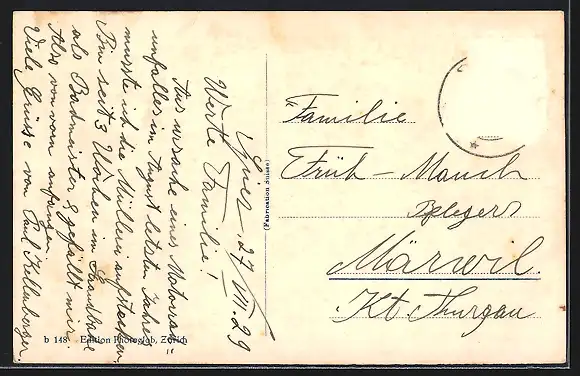 Spiez, 27/VII. 29
Werte Familie!
Aus ursache eines Motorrad
unfalles im August letzten Jahres
musste ich die Müllerei aufstecken,
Bin seit 3 Wochen im Strandbad
als Badmeister & gefällt mir.
Also von vorn anfangen
Viele Grüsse von Paul Kellenberger,
Familie
Früh – Mauch
Pflegers
Märwil.
Kt. Thurgau
(Fabrication Suisse)
b 148 Edition Photoglob, Zürich